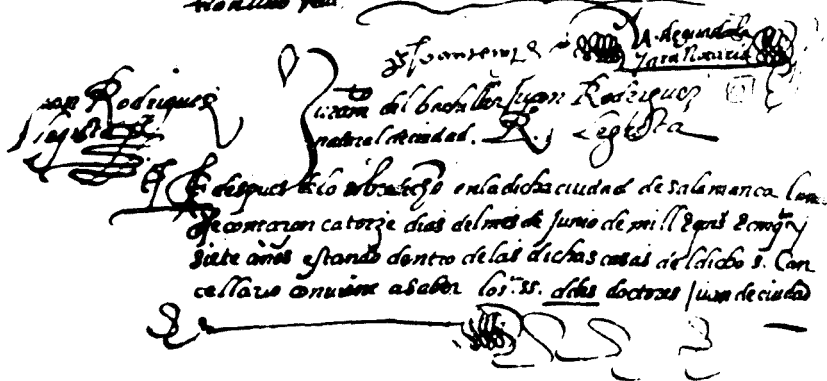 A. de guadala
Jara Notario
Juan Rodriguez
legista
examen del bachiller Juan Rodriguez
natural de ciudad R. legista
E despues de lo sobredicho en la dicha ciudad de Salamanca lunes
se contaron catorze dias del mes de Junio de mill
siete años estando dentro de las dichas casas del dicho s. Can
cellario conviene a saber los ss. doctores Juan de ciudad